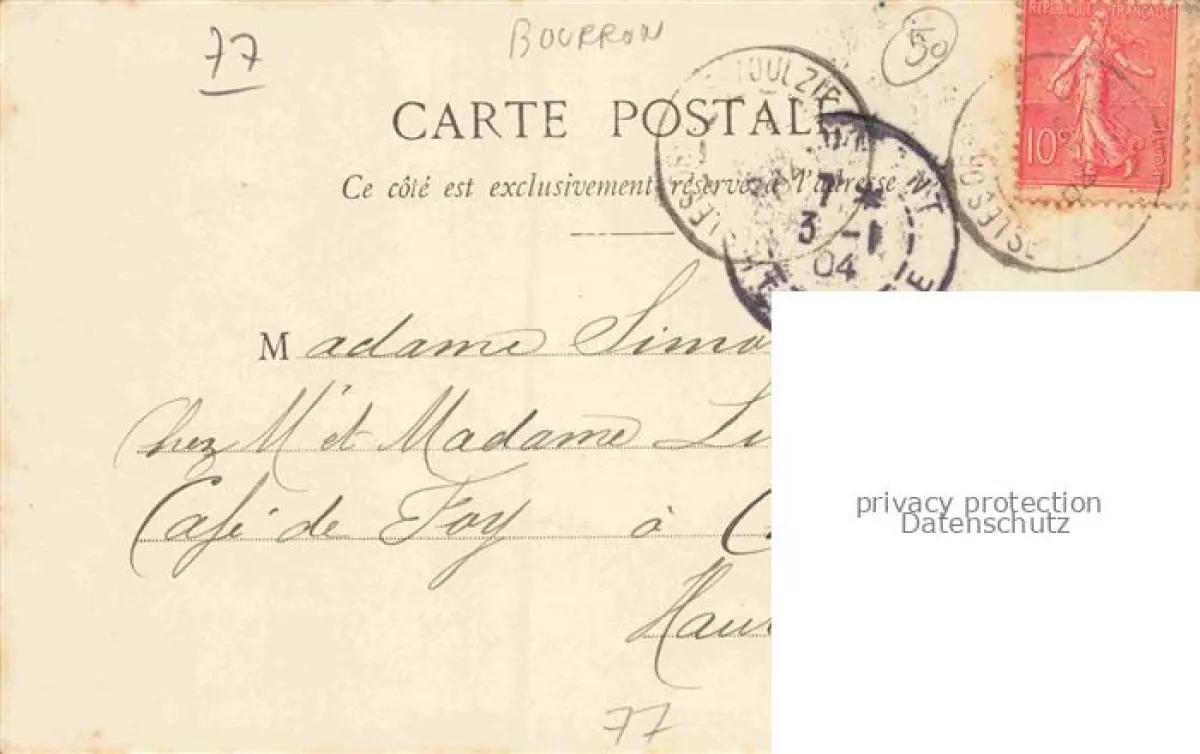 77
BOURRON
50
RÉPUBLIQUE FRANÇAISE
10c
CARTE POSTALE
Ce côté est exclusivement réservé à l'adresse
7
3 - 1
04
Madame Simo
chez Mr et Madame Li
Café de Foy à C
Hau
privacy protection
Datenschutz
77